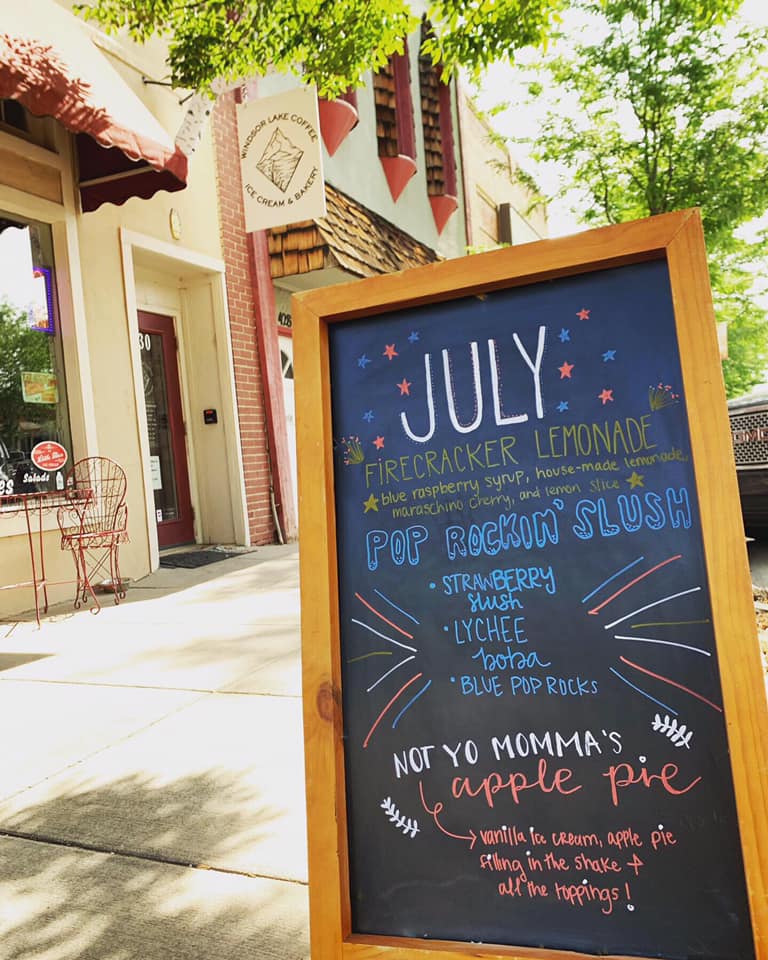 WINDSOR LAKE COFFEE
ICE CREAM & BAKERY
30
Salads
JULY
FIRECRACKER LEMONADE
blue raspberry syrup, house-made lemonade,
maraschino cherry, and lemon slice
POP ROCKIN' SLUSH
• STRAWBERRY
slush
• LYCHEE
boba
• BLUE POP ROCKS
NOT YO MOMMA'S
apple pie
vanilla ice cream, apple pie
filling in the shake +
all the toppings!
GMC